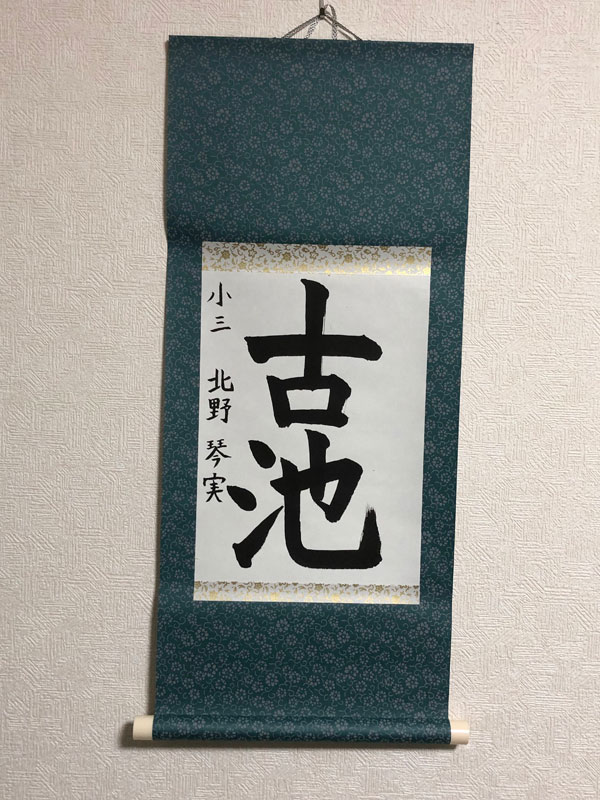 古池
小三 北野 琴実